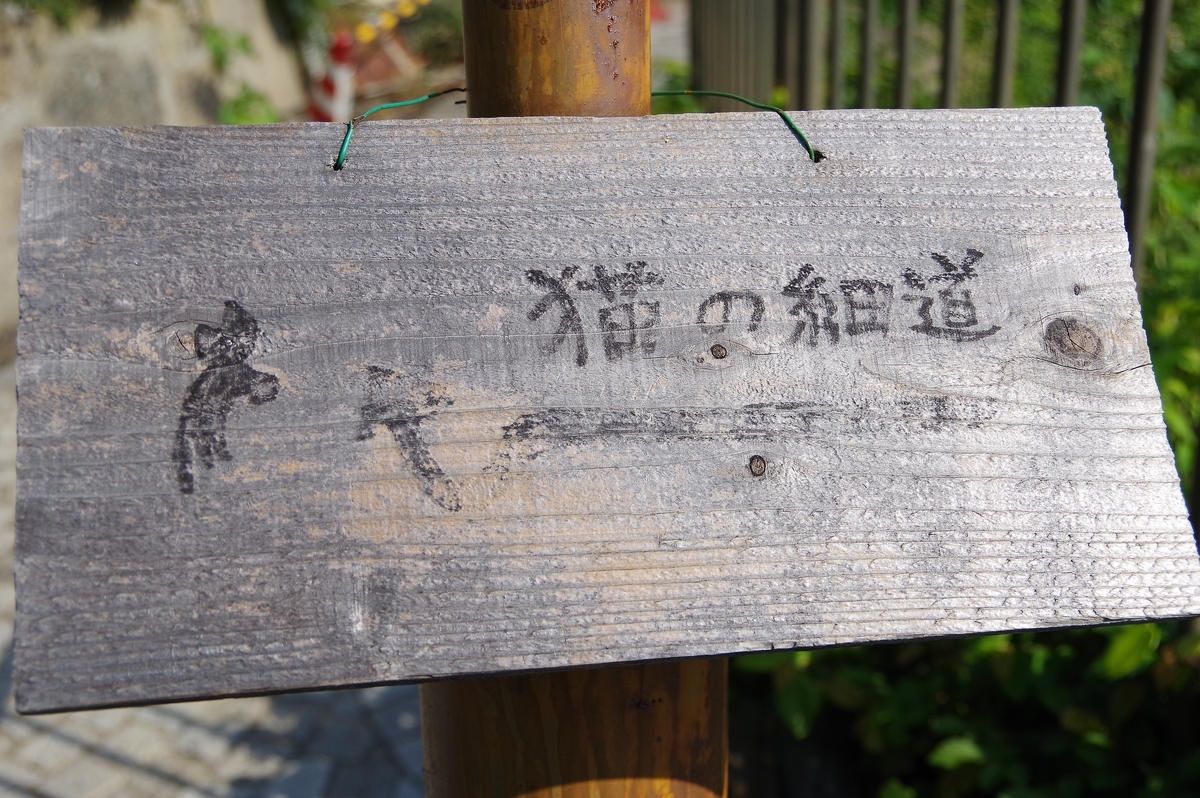 猫の細道